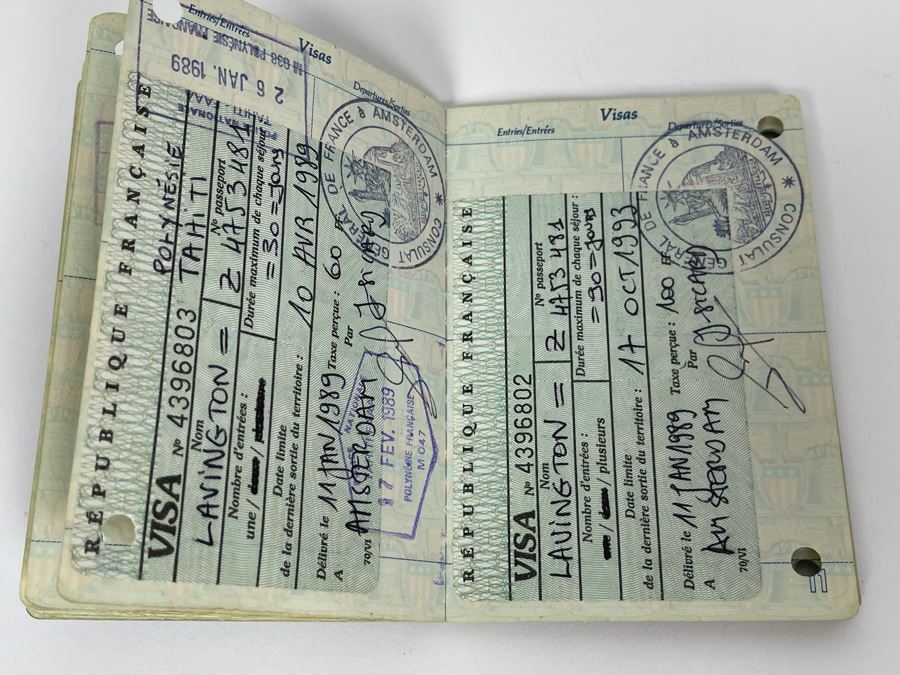 Entries/Entrées
Visas
Departures/Sorties
038 POLYNÉSIE FRANÇAISE
26 JAN. 1989
RÉPUBLIQUE FRANÇAISE
POLYNÉSIE
VISA No 4396803 TAHITI
Nom No passeport
LAVINGTON = Z 4753481
Nombre d'entrées : Durée maximum de chaque séjour
une / / = 30 = jours
Date limite
de la dernière sortie du territoire : 10 AVR 1989
Délivré le 11 JAN 1989 Taxe perçue : 60 FF
A AMSTERDAM Par
70/VI
CONSULAT GÉNÉRAL DE FRANCE à AMSTERDAM *
17 FEV. 1989
POLYNÉSIE FRANÇAISE
M 047
Entries/Entrées
Visas
Departures/Sorties
RÉPUBLIQUE FRANÇAISE
VISA No 4396802
Nom No passeport
LAVINGTON = Z 4753481
Nombre d'entrées : Durée maximum de chaque séjour :
/ / plusieurs = 90 = jours
Date limite
de la dernière sortie du territoire : 17 OCT 1993
Délivré le 11 JAN 1989 Taxe perçue : 100 FF
A AMSTERDAM Par
70/VI
CONSULAT GÉNÉRAL DE FRANCE à AMSTERDAM *
11